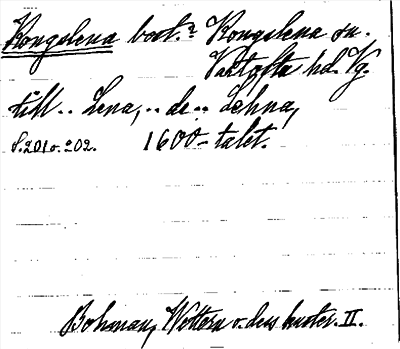 Kongslena bost.? Kongslena sn.
Vartofta hd. Vg.
till .. Lena, .. de .. Lehna,
S. 201 o. 202. 1600-talet.
Boheman, Wettern o. dess kuster. II.